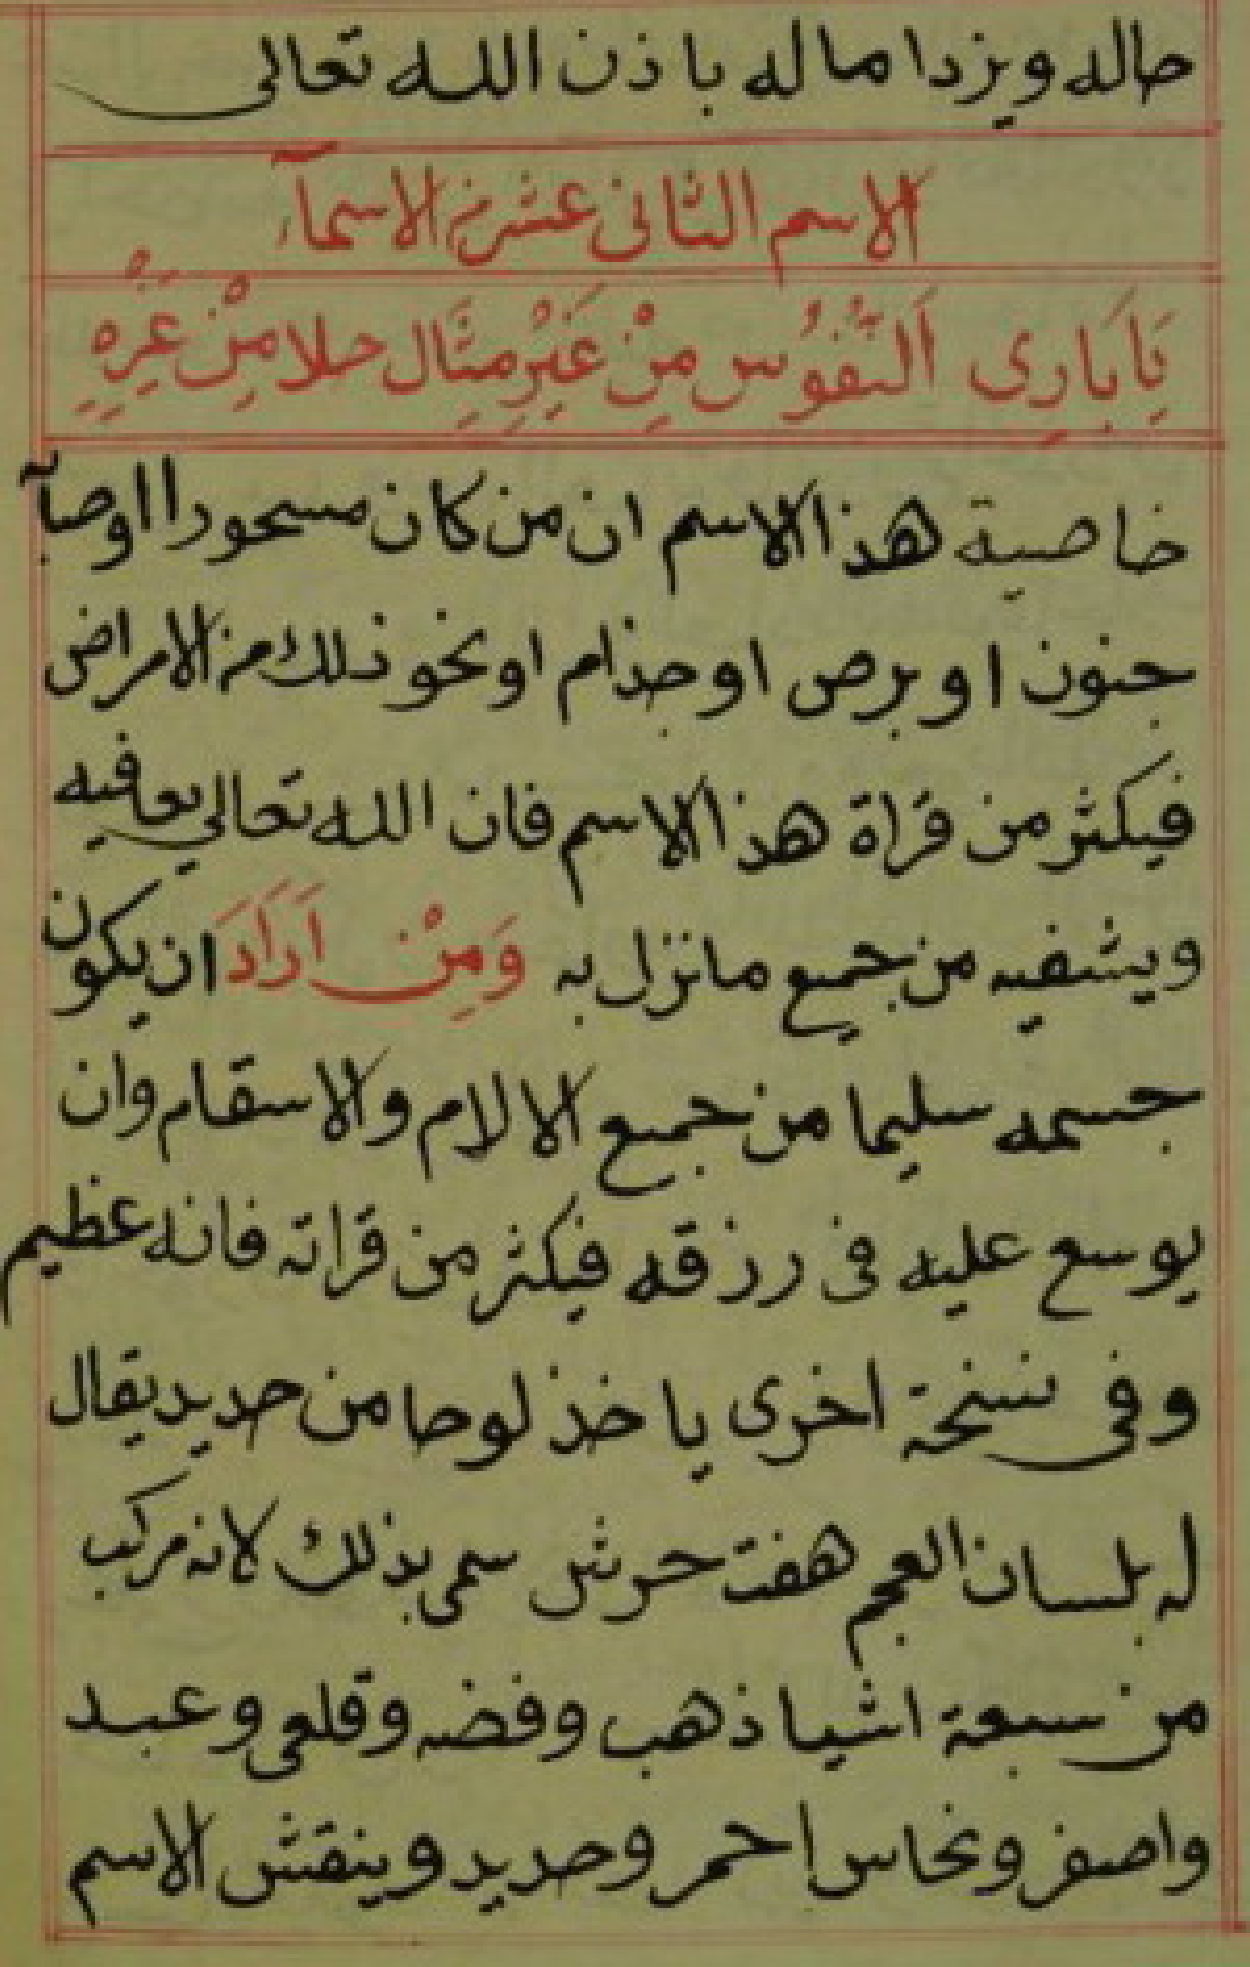 حاله ويزدا ماله باذن الله تعالى
الاسم الثانى عشر من الاسمآء
يَا بَارِى اَلنُّفُوُس مِنْ غَيْرِ مِثَال خلا مِنْ غَيْرِهِ
خاصية هذا الاسم ان من كان مسحورا او صبآ
جنون او برص او جذام او نحو ذلك من الامراض
فيكثر من قراة هذا الاسم فان الله تعالي يعافيه
ويشفيه من جميع ما نزل به وَمِنْ اَرَادَ ان يكون
جسمه سليما من جميع الالام والاسقام وان
يوسع عليه فى رزقه فيكثر من قراته فانه عظيم
وفى نسخة اخرى ياخذ لوحا من حديد يقال
له بلسان العجم هفت حوش سمى بذلك لانه مركب
من سبعة اشيا ذهب وفضه وقلعى وعبد
واصفر ونحاس احمر وحديد وينقش الاسم